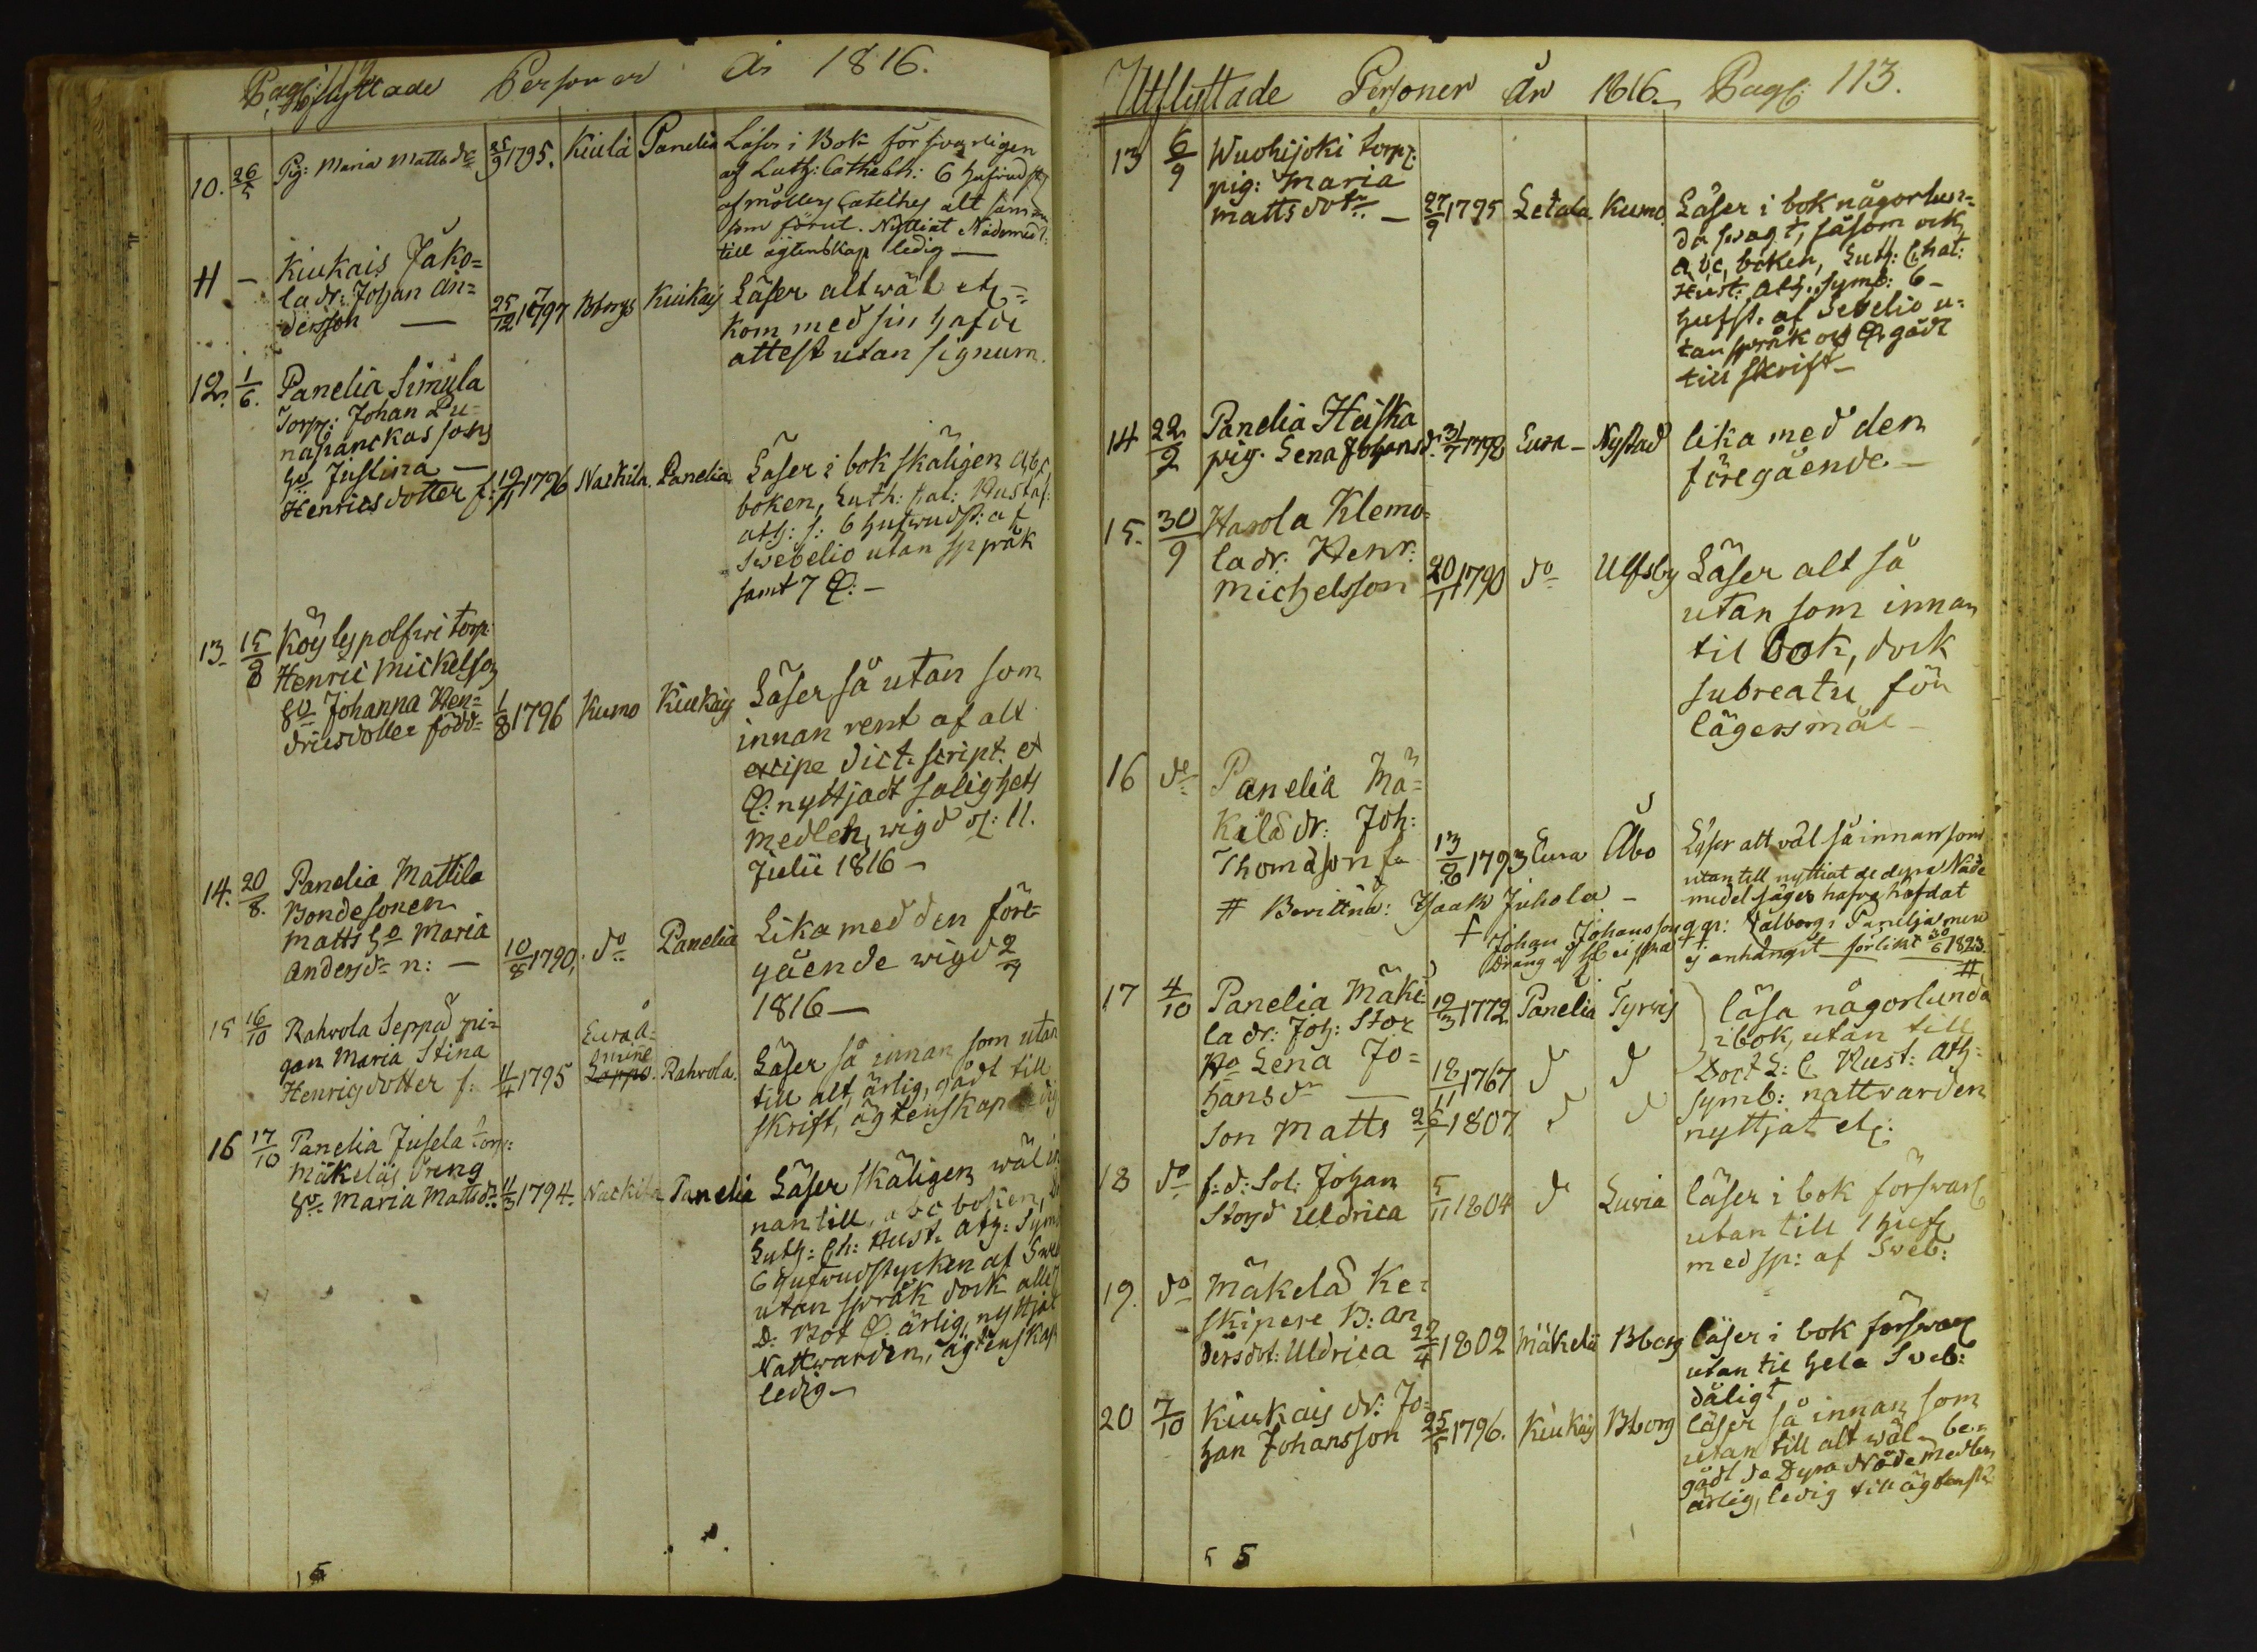 Inflyttade Personer År 1816.
10. 26/5 Pig: Maria Mattsdr 25/9 1795. Kiula Panelia Läser i Bok försvarligen
af Luth: Cathech: 6 hufvudst:
af möllers Cateches alt samma
som förut. Nyttiat Nådemed:
till ägtenskap ledig —
11 — Kiukais Jako=
la dr: Johan An=
dersson — 25/12 1797 Bborgs Kiukais Läser alt wäl etc =
kom med sin hafde
attest utan signum.
12. 1/6. Panelia Simula
Torp: Johan Pu=
napanckas sons
ho Justina —
Henricsdotter f: 19/11 1796 Nackila. Panelia Läser i bok skäligen abc
boken, Luth: Hustaf:
ath: s: 6 hufwudst: af
Swebelio utan språk
samt 7 Ps: —
13. 15/8 Köylypolfwi torp:
Henric Mickelson
ho Johanna Hen=
dricsdotter född= 1/8 1796 Kumo Kiukais Läser så utan som
innan rent af alt
excipe dict: script: et
Ps: nyttjadt salighets
medlen, wigd d: 11.
Julii 1816 —
14. 20/8. Panelia Mattila
Bondesonen
Matts ho Maria
Andersdr n: — 10/8 1790, do Panelia Lika med den före=
gående wigd 2/7
1816 —
15 16/10 Rahvola Seppä pi=
gan Maria Stina
Henrigsdotter f: 4/4 1795 Eura å=
minne
Lappo. Rahvola. Läser så innan som utan
till alt, ärlig, gådt till
skrift, ägtenskap ledig
16 17/10 Panelia Jusela torp:
Mäkeläs dreng
ho Maria Mattsdr: 11/3 1794. Nackila Panelia Läser skäligen wäl in
nantill, abc boken,
Luth: Ch: Hust: Ath: Symb
6 hufwudstycken af Sweb
utan språk dock alle 7
D: Bot Ps. ärlig, nyttjat
Nattwarden, ägtenskap
ledig —
Utflyttade Personer År 1816. Pag: 113.
13 6/9 Wuohijoki torp:
pig: Maria
Mattsdotr — 27/9 1795 Letala Kumo Läser i bok någorlun=
da svagt, såsom ock
abc, boken, Luth: Chat:
Hust: ath: symb: 6 —
hufst. af Svebelio u=
tan språk och Ps. gådt
till skrift —
14 22/9 Panelia Heiska
pig. Lena Johansd: 31/7 1798 Eura — Nystad lika med den
föregående. —
15. 30/9 Harola Klemo=
la dr. Henr:
Michelsson 20/11 1790 do Ulfsby Läser alt så
utan som innan
til bok, dock
subreatu för
lägersmål —
16 do Panelia Mä=
kälä dr: Joh:
Thomasson f. 13/8 1793 Eura Åbo Läser alt väl så innan som
utan till nyttiat de dyra Nåde
medel säges hafva hafdat
# Isaak Juhola —
Johan Johansson qqr: Valborg i Panelja men
ej anhängit förlikt 30/6 1823. #
17 4/10 Panelia Mäke=
la dr: Joh: Stor 19/3 1772 Panelia Tyrvis läsa någorlunda
i bok, utan till
Ho Lena Jo=
hansdr — 18/11 1767 d d Doct L: C Hust: ath:
symb: nattvarden
son Matts 26/7 1807. d d nyttjat etc:
18 do f: d: Sol: Johan
Stoyd Uldrica 5/11 1804 d Luvia läser i bok försvarl
utan till 1 hufs
med sp: af Sveb:
19. do Mäkelä Ke=
skipere B: An
dersdot: Uldrica 22/4 1802 Mäkelä Bborg läser i bok försvarl
utan til hela Sveb:
dåligt
20 7/10 Kiukais dr: Jo=
han Johansson 25/5 1796. Kiukais Bborg läser så innan som
utan till alt wäl — be=
gådt de Dyra Nådemedlen
ärlig, ledig till ägtensk: